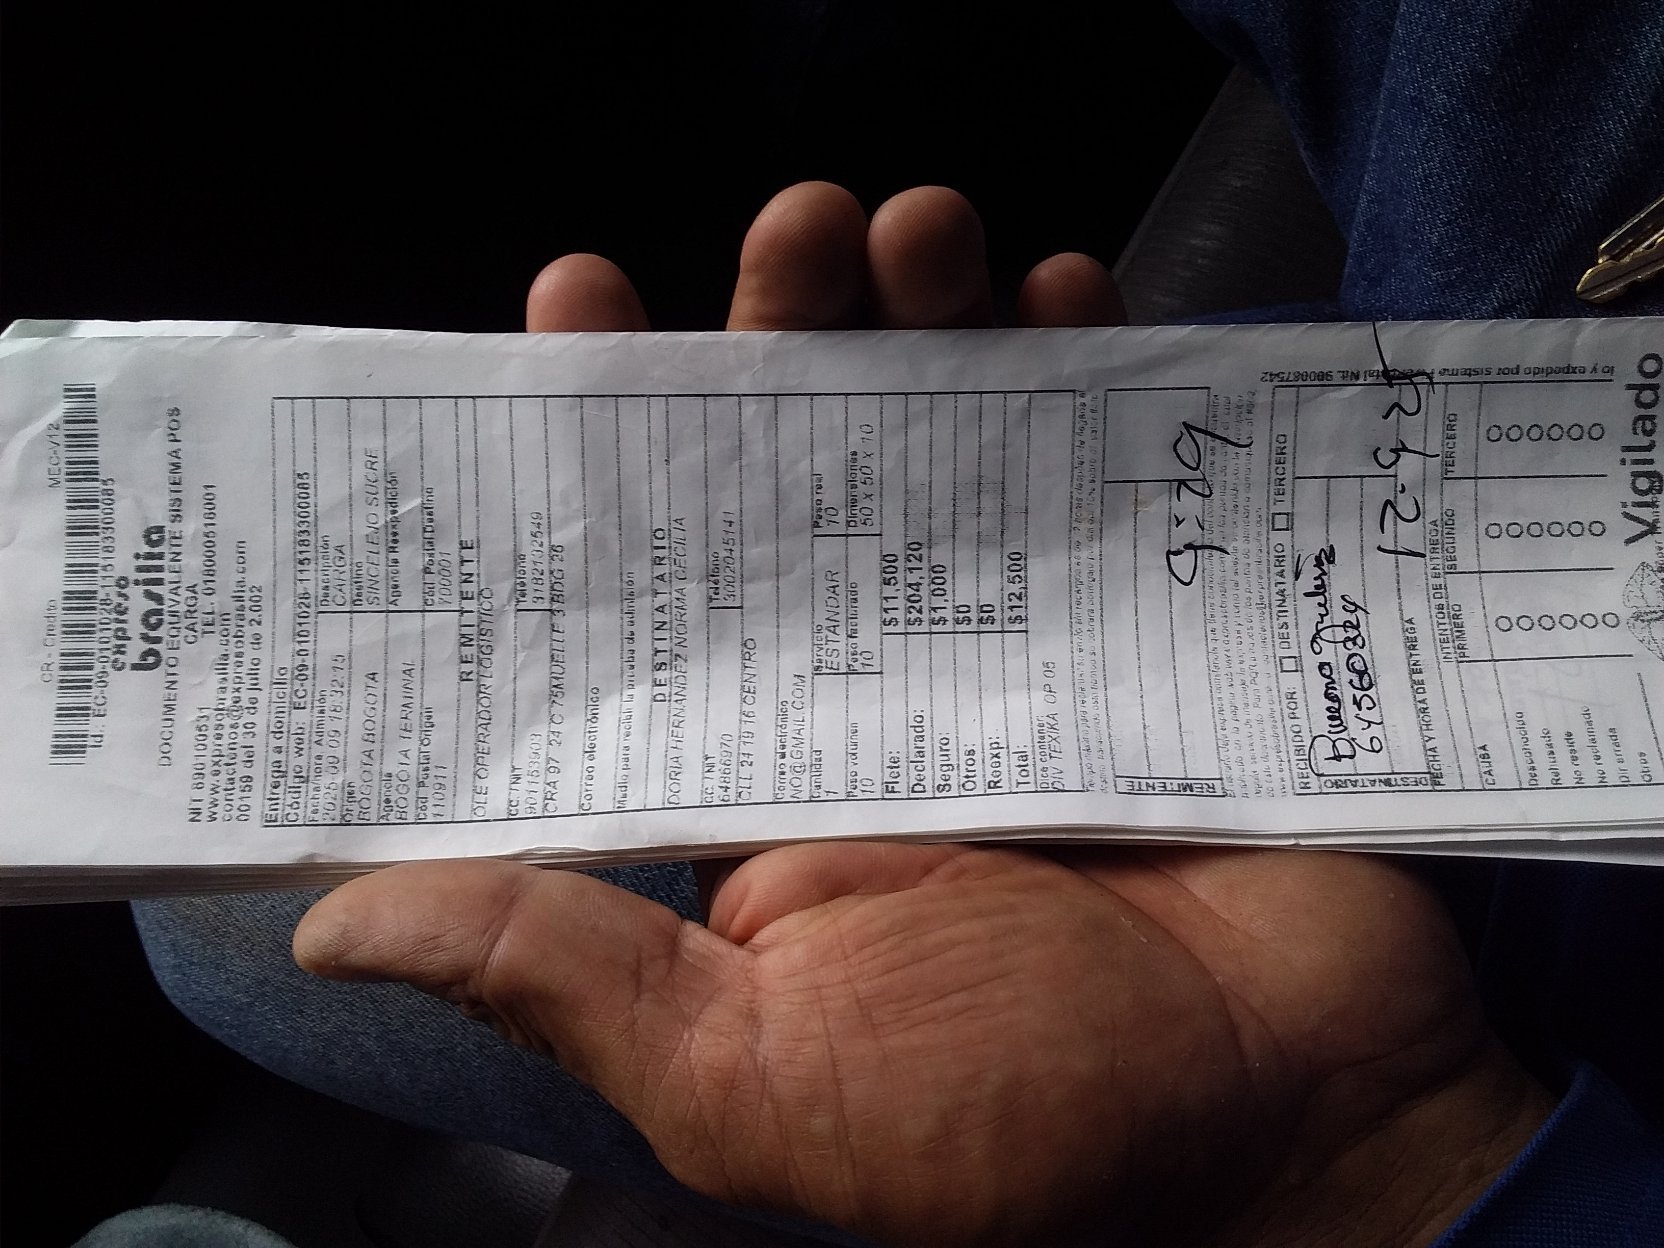 CR - Credito MEC-V12
Id. EC-09-0101028-115183300085
expreso
brasilia
DOCUMENTO EQUIVALENTE SISTEMA POS
CARGA
NIT 890100531 TEL. 018000518001
www.expresobrasilia.com
contactenos@expresobrasilia.com
00159 del 30 de julio de 2.002
Entrega a domicilio
Código web: EC-09-0101028-115183300085
Fecha/hora Admisión Descripción
2025 09 09 18:32:15 CARGA
Origen Destino
BOGOTA BOGOTA SINCELEJO SUCRE
Agencia Agencia Reexpedición
BOGOTA TERMINAL
Cód. Postal Origen Cód. Postal Destino
110911 700001
REMITENTE
OLE OPERADOR LOGISTICO
CC. / NIT Teléfono
901153903 3182132549
CRA 97 24 C 75MUELLE 3BDG 26
Correo electrónico
Medio para recibir la prueba de admisión
DESTINATARIO
DORIA HERNANDEZ NORMA CECILIA
CC. / NIT Teléfono
64866970 3002045141
CLL 24 19 16 CENTRO
Correo electrónico
NO@GMAIL.COM
Cantidad Servicio Peso real
1 ESTANDAR 10
Peso volumen Peso facturado Dimensiones
10 10 50 X 50 X 10
Flete: $11,500
Declarado: $204,120
Seguro: $1,000
Otros: $0
Reexp: $0
Total: $12,500
Dice contener:
DIV TEXIKA OP 05
REMITENTE
9:29
RECIBIDO POR: DESTINATARIO TERCERO
64560324
12-9-25
FECHA Y HORA DE ENTREGA
INTENTOS DE ENTREGA
CAUSA PRIMERO SEGUNDO TERCERO
Desconocido
Rehusado
No reside
No reclamado
Dir errada
Otros
Vigilado